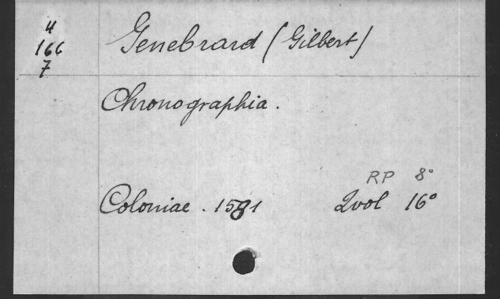 4
166
7
Genebrard (Gilbert)
Chronographia.
RP 8°
Coloniae. 1581 2vol 16°